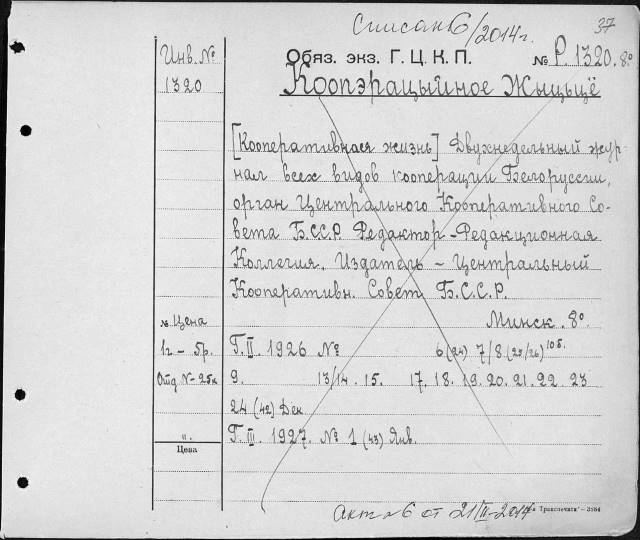 Списан 6/2014г.
37
Инв. №
1320
Обяз. экз. Г. Ц. К. П.
№ Р. 1320. 8º
Коопэрацыйное Жыцьцё
[Кооперативная жизнь] Двухнедельный жур-
нал всех видов кооперации Белоруссии,
орган Центрального Кооперативного Со-
вета Б.С.С.Р. Редактор - Редакционная
Коллегия. Издатель - Центральный
Кооперативн. Совет Б.С.С.Р.
Минск. 8º
Цена
1г. - 5р.
Отд № - 25к
Г. II. 1926 № 6 (24) 7/8 (25/26) 105.
9. 13/14. 15. 17. 18. 19. 20. 21. 22. 23
24 (42) Дек.
Г. III. 1927. № 1 (43) Янв.
".
Цена
Акт № 6 от 21/II-2014
Транспечати" - 3584